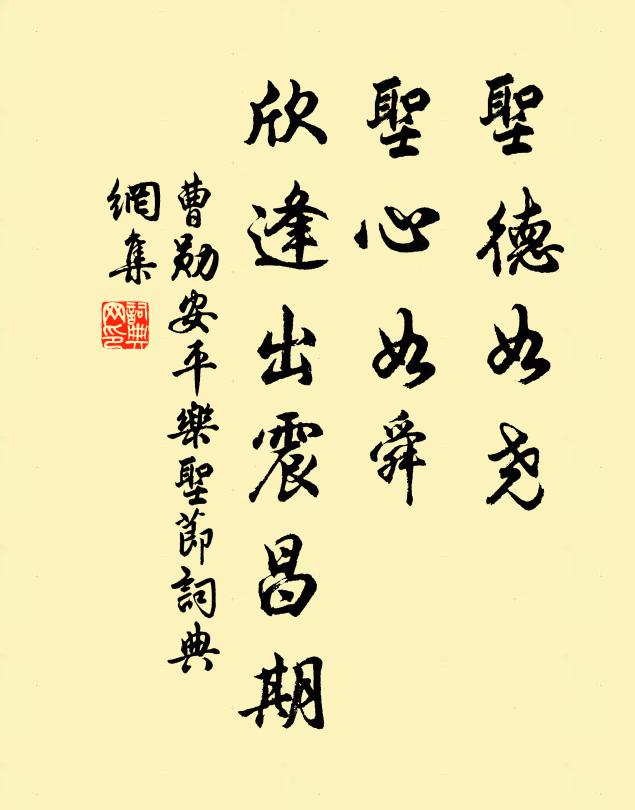 聖德如尧
聖心如舜
欣逢出震昌期
曹勛安平樂聖節詞典
網集
詞典網印